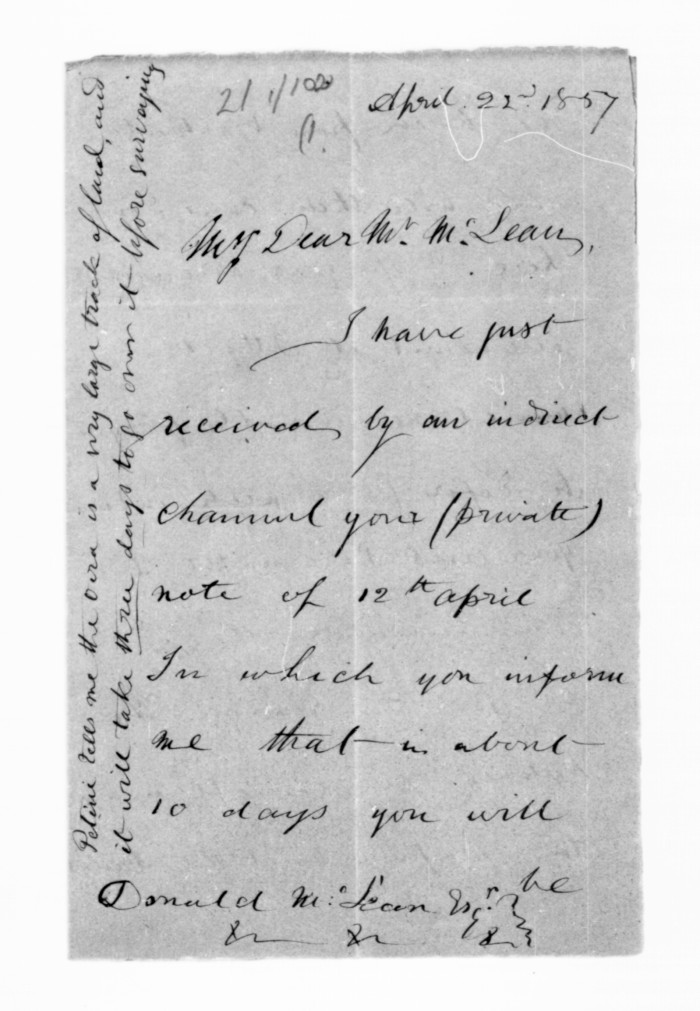 21 1/100
April. 22d. 1857
My Dear Mr. McLean,
I have just
received by an indirect
channel your (private)
note of 12th april
In which you inform
me that in about
10 days you will
be
Donald McLean Esqr.
&c &c &c
Petini tells me the Oira is a very large track of land, and
it will take three days to go over it before surveying